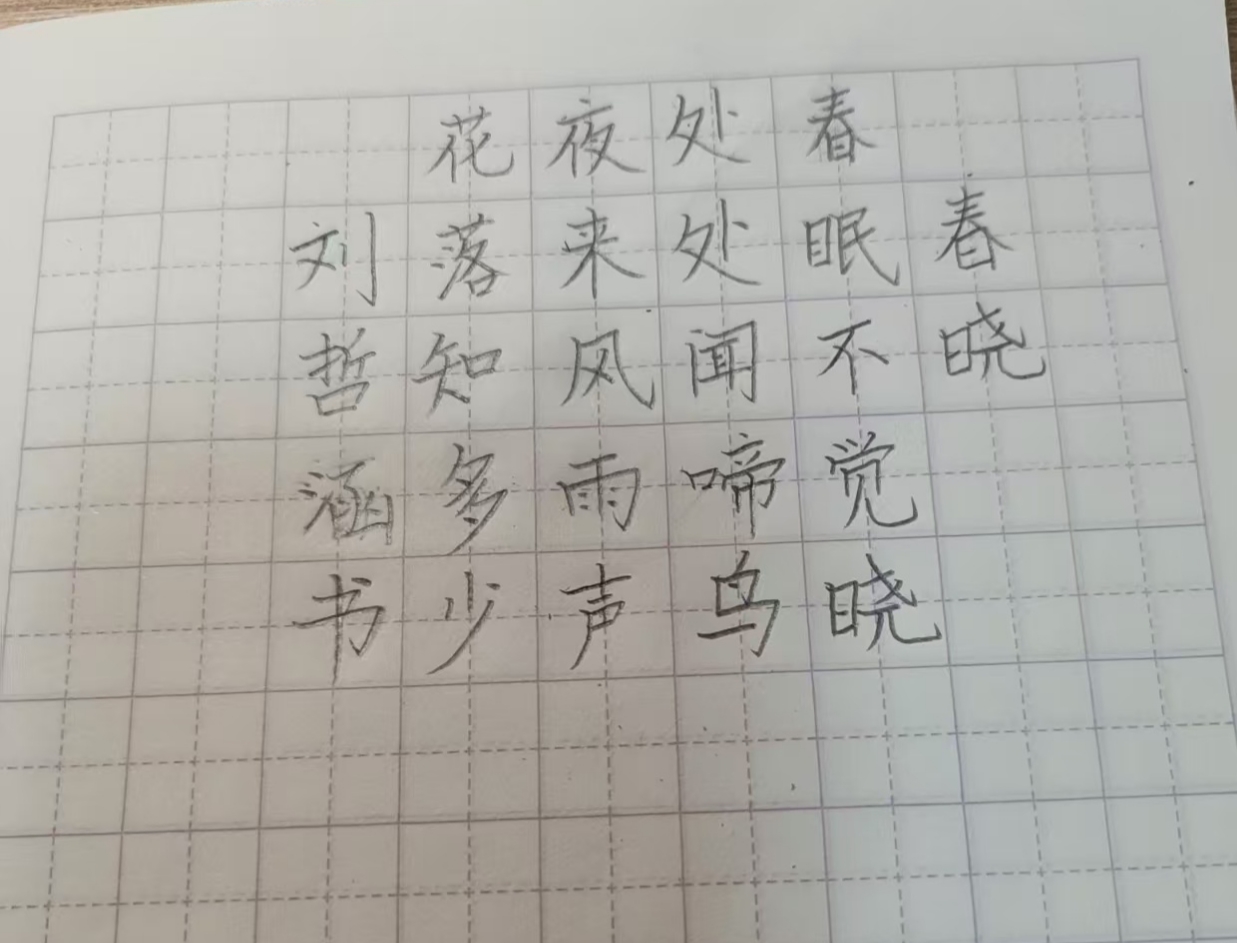 春晓
春眠不觉晓
处处闻啼鸟
夜来风雨声
花落知多少
刘哲涵书